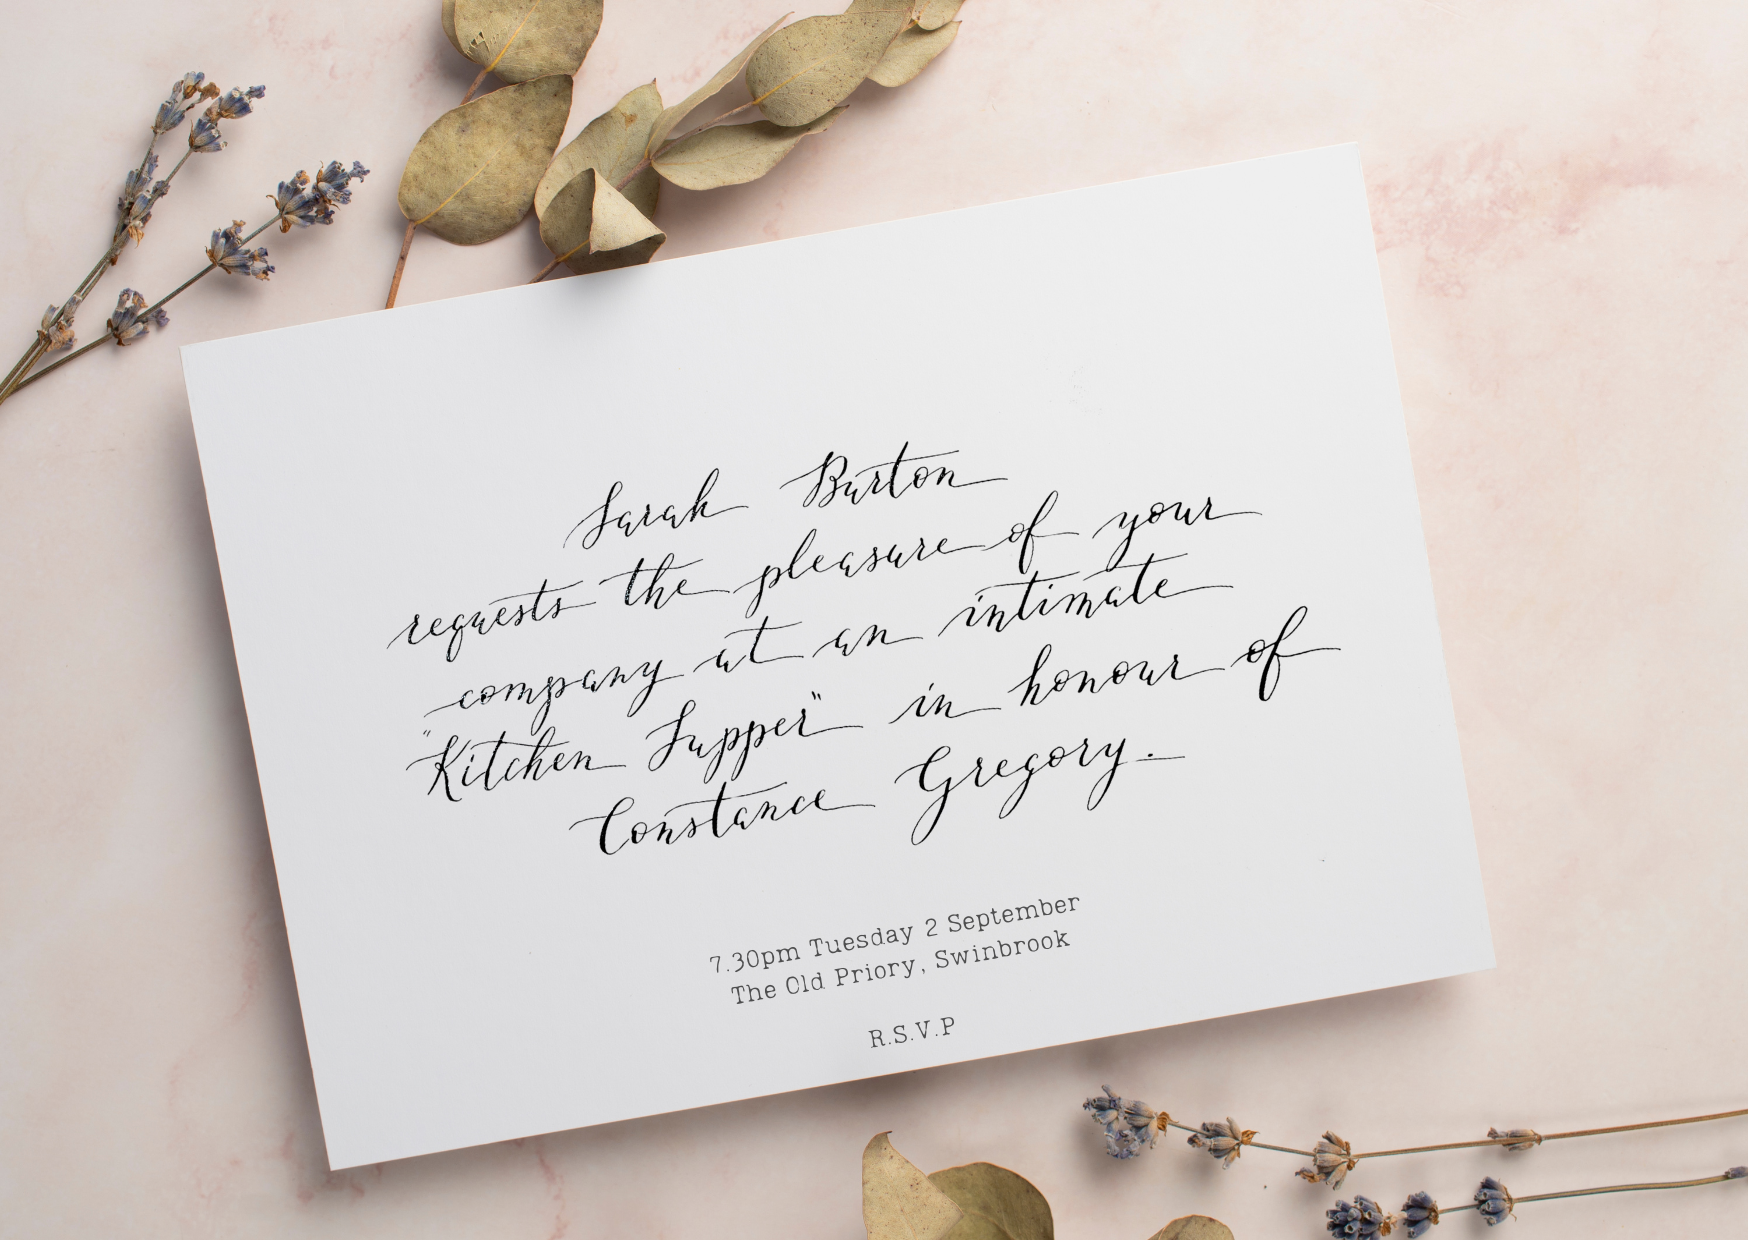 Sarah Burton
requests the pleasure of your
company at an intimate
"Kitchen Supper" in honour of
Constance Gregory.
7.30pm Tuesday 2 September
The Old Priory, Swinbrook
R.S.V.P